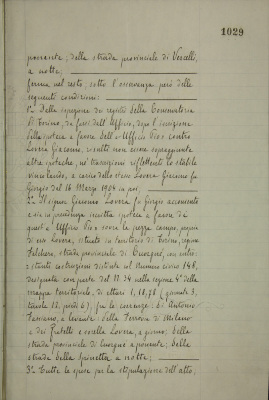 1029
ponente; della strada provinciale di Vercelli,
a notte;
ferma nel resto, sotto l'osservanza però delle
seguenti condizioni:
1.a Della ispezione dei registri della Conservatoria
di Torino, da farsi dall'Ufficio, dopo l'iscrizione
dell'ipoteca a favore dell'Ufficio Pio contro
Lovera Giacomo, risulti non essere sopraggiunte
altre ipoteche, nè trascrizioni riflettenti lo stabile
vincolando, a carico dello stesso Lovera Giacomo fu
Giorgio dal 16 Marzo 1904 in poi;
2.a Il signor Giacomo Lovera fu Giorgio acconsenta
e sia in precedenza iscritta ipoteca a favore di
quest'Ufficio Pio sovra la pezza campo, propria
di esso Lovera, situata in territorio di Torino, regione
Falchera, strada provinciale di Cuorgnè, con entro-
stanti costruzioni distinte col numero civico 148,
designata con parte del N. 34 nella regione 4.a della
mappa territoriale, di ettare 1,18,78 (giornate 3,
tavole 12, piedi 6), fra le coerenze: di Antonio
a levante; della Ferrovia di Milano
e dei fratelli e sorella Lovera, a giorno; della
strada provinciale di Cuorgnè a ponente; della
strada della Spinetta a notte;
3.a Tutte le spese per la stipulazione dell'atto,